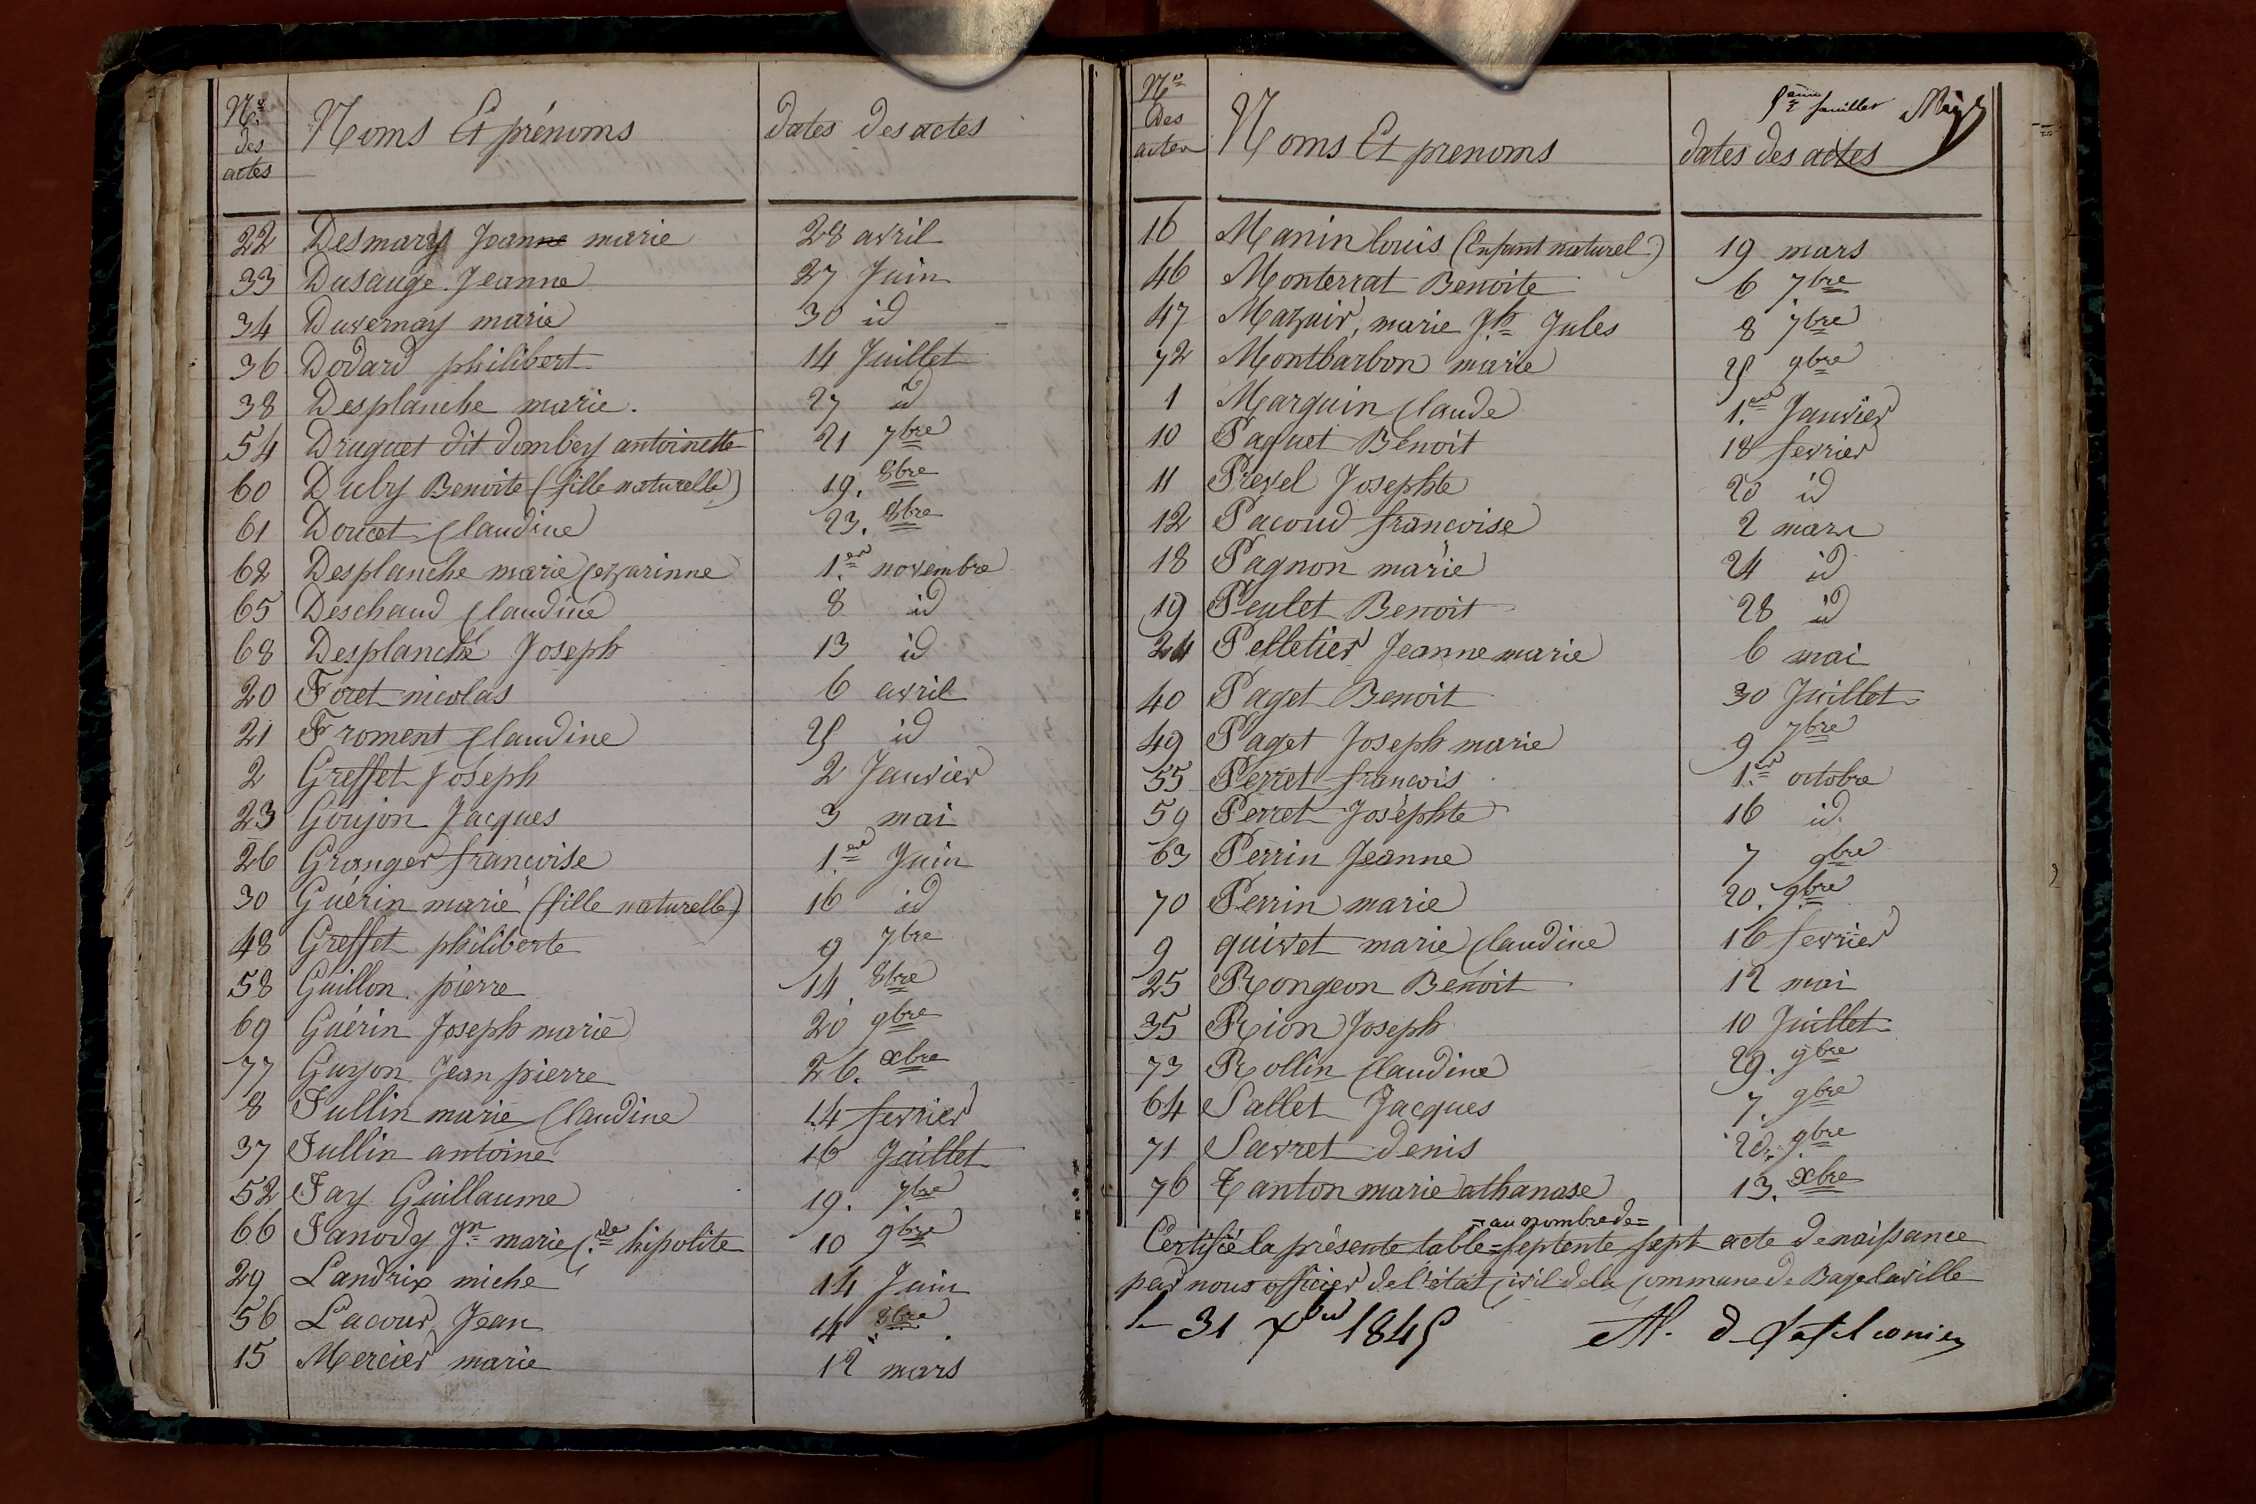 Nos des actes Noms Et prénoms dates des actes
22 Desmary Jeanne marie 28 avril
33 Dusauge Jeanne 27 Juin
34 Duvernay marie 30 id
36 Dodard philibert 14 Juillet
38 Desplanche marie. 27 id
54 Draguet dit dombey antoinette 21 7bre
60 Duby Benoite (fille naturelle) 19. 8bre
61 Doucet Claudine 23. 8bre
62 Desplanche marie Cezarinne 1.er novembre
65 Deschaud Claudine 8 id
68 Desplanche Joseph 13 id
20 Foret nicolas 6 avril
21 Froment Claudine 25 id
2 Greffet Joseph 2 Janvier
23 Goujon Jacques 3 mai
26 Granger françoise 1.er Juin
30 Guérin marie (fille naturelle) 16 id
48 Greffet philiberte 9 7bre
58 Guillon pierre 14. 8bre
69 Guérin Joseph marie 20 9bre
77 Guyon Jean pierre 26. xbre
8 Jullin marie Claudine 14 fevrier
37 Jullin antoine 16 Juillet
52 Jay Guillaume 19. 7bre
66 Janody Jn marie C.de hipolite 10 9bre
29 Landrix miche 14 Juin
56 Lacour Jean 14 8bre
15 Mercier marie 12 mars
feuillet
Nos des actes Noms Et prenoms dates des actes
16 Manin louis (Enfant naturel) 19 mars
46 Monterrat Benoite 6 7bre
47 Mazuir, marie Jh Jules 8 7bre
72 Montbarbon marie 25 9bre
1 Marguin Claude 1.er Janvier
10 Paquet Benoit 18 fevrier
11 Prevel Josephte 20 id
12 Pacoud françoise 2 mars
18 Pagnon marie 24 id
19 Peulet Benoit 28 id
24 Pelletier Jeanne marie 6 mai
40 Paget Benoit 30 Juillet
49 Paget Joseph marie 9 7bre
55 Perret francois 1.er octobre
59 Perret Josephte 16 id.
63 Perrin Jeanne 7 9bre
70 Perrin marie 20. 9bre
9 quivet marie Claudine 16 fevrier
25 Rongeon Benoit 12 mai
35 Rion Joseph 10 Juillet
73 Rollin Claudine 29. 9bre
64 Sallet Jacques 7. 9bre
71 Savret denis 20. 9bre
76 Tanton marie athanase 13. xbre
= au nombre de =
Certifié la présente table = septente sept acte de naissance
par nous officier de l'état Civil de la Commune de Bagelaville
le 31 xbre 1845